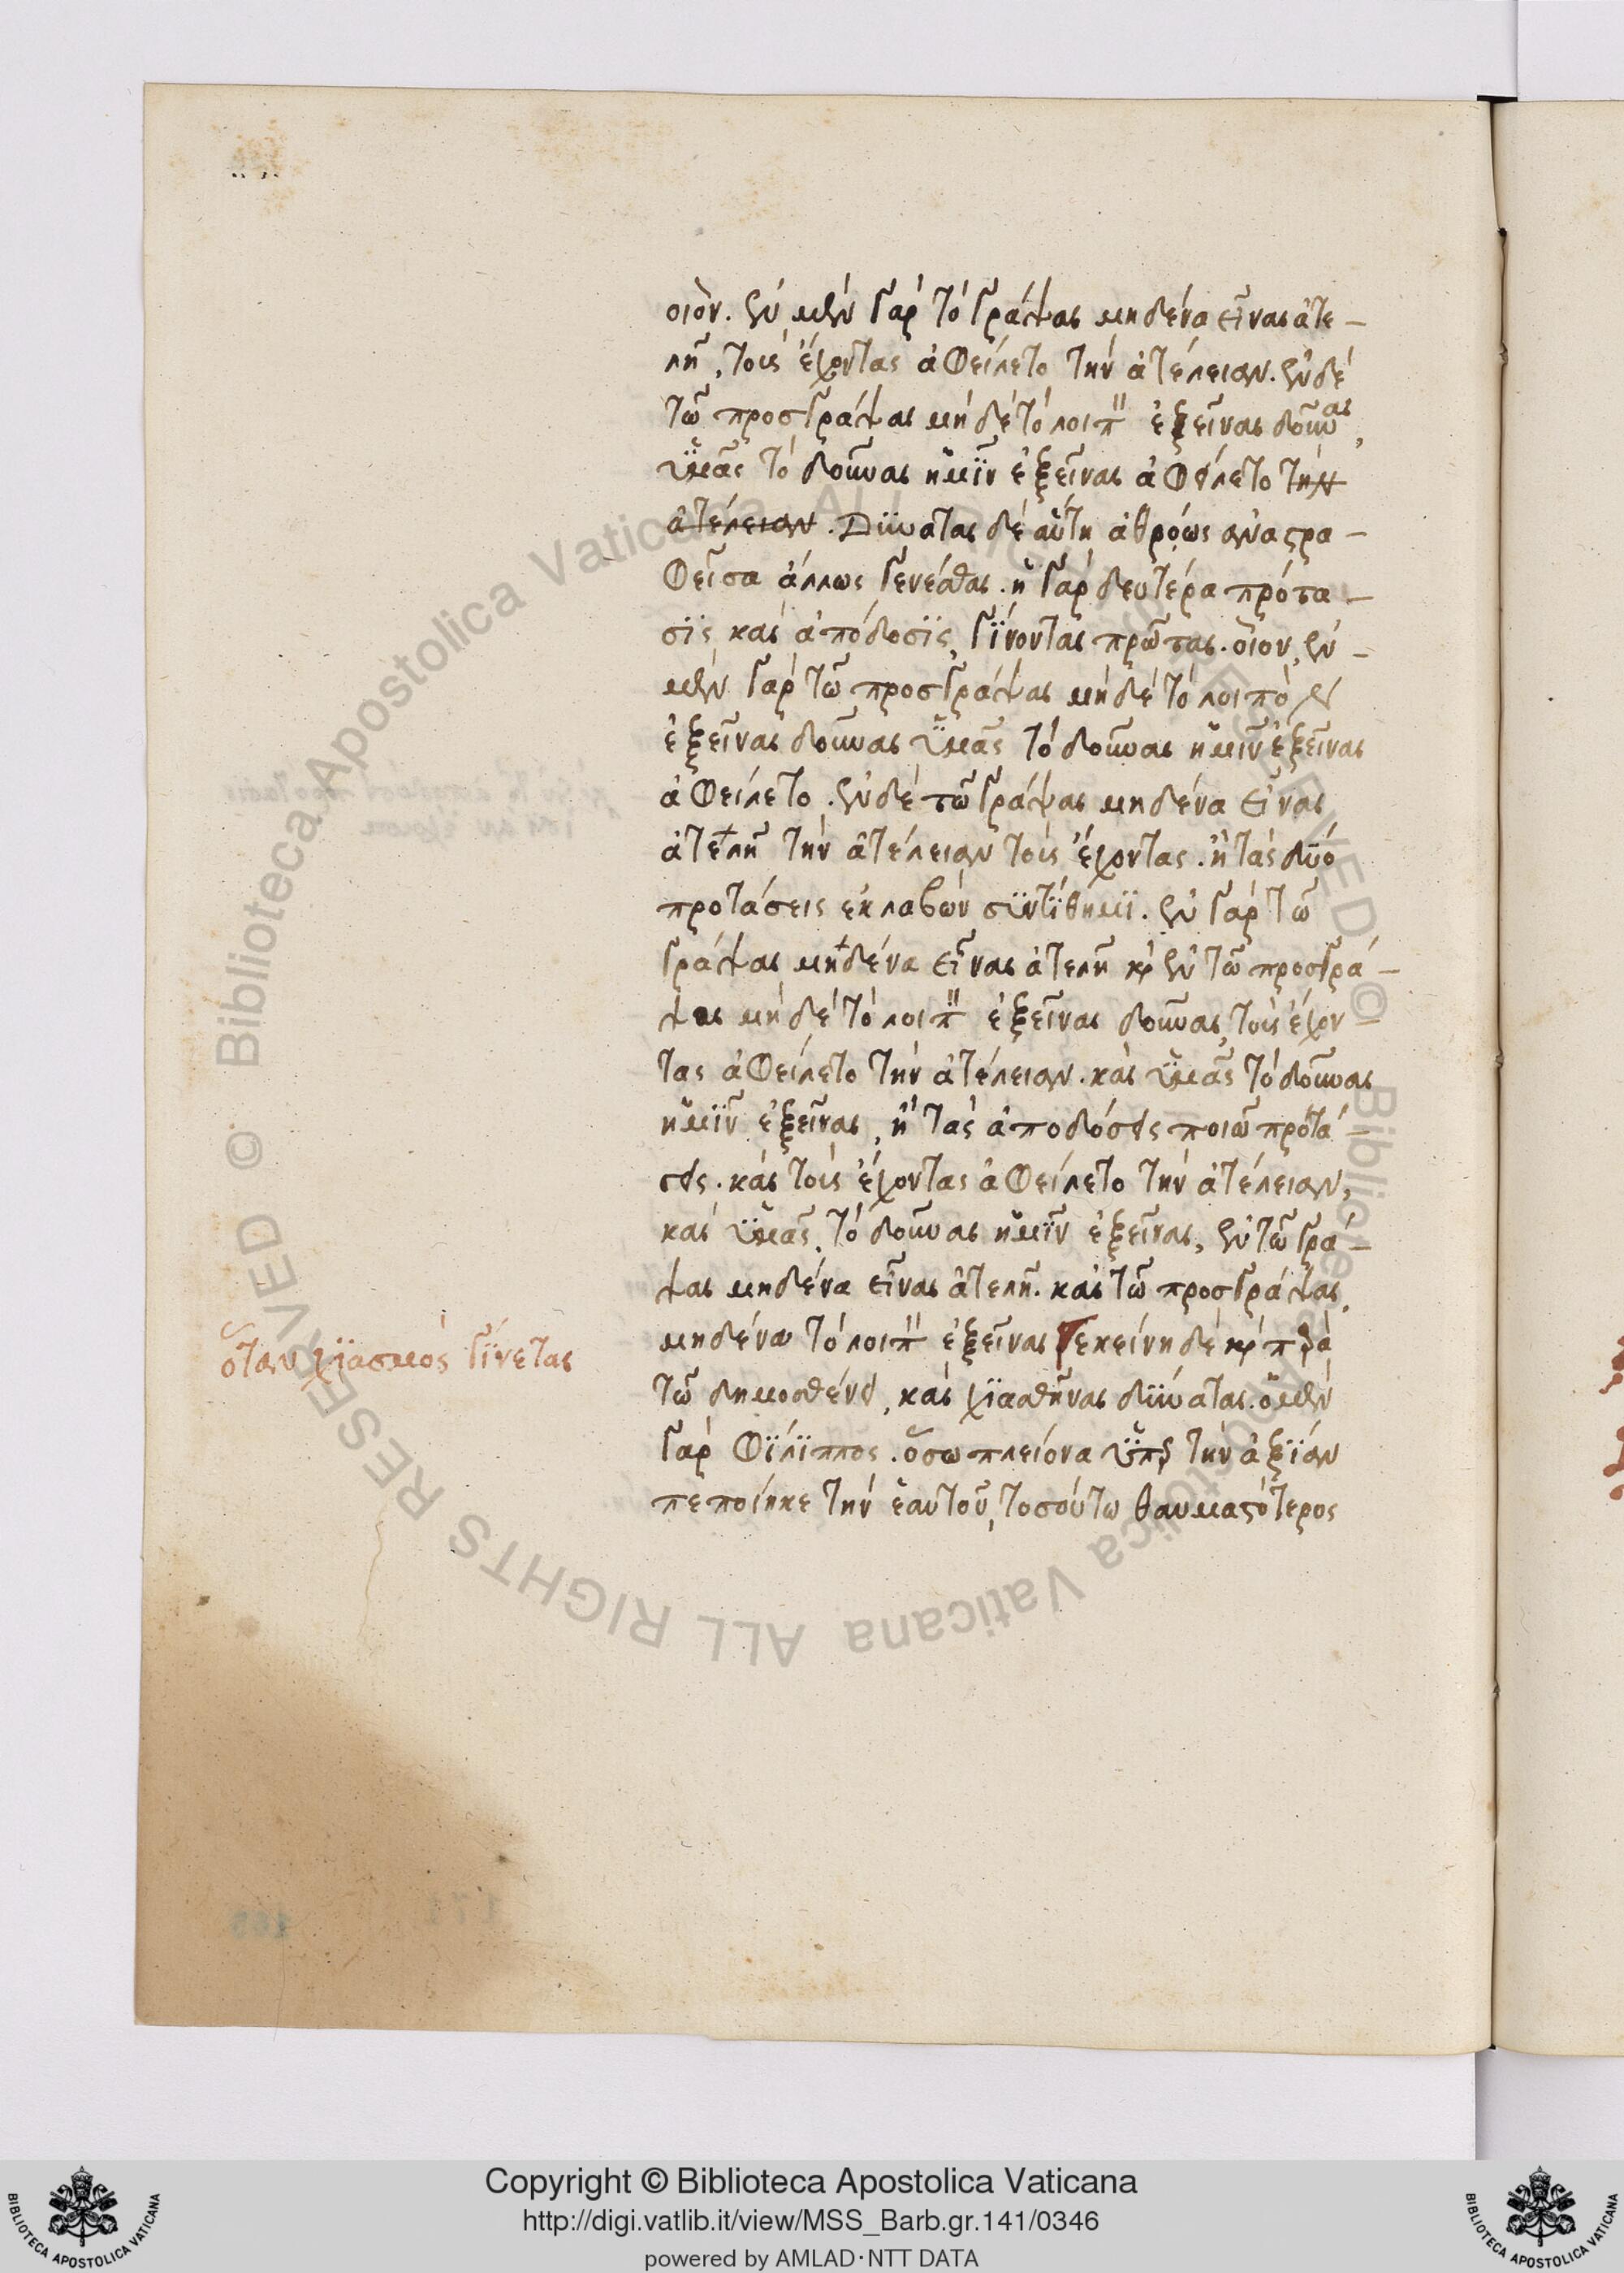 οἱὸν. ἐν μὲν γὰρ τὸ γράψαι μηδένα εἶναι ἀτε –
λῆ, τοὺς ἔχοντας ἀφείλετο τὴν ἀτέλειαν. ἐν δὲ
τῶ προσγράψαι μὴ δὲ τὸ λοιπ" ἐξεῖναι δοῦναι,
ὑμᾶς τὸ δοῦναι ἡμῖν ἐξεῖναι ἀφείλετο τὴν
ἀτέλειαν. Δύναται δὲ αὕτη ἀθρόως ἀναστρα –
φεῖσα ἄλλως γενέσθαι. ἡ γὰρ δευτέρα πρότα –
σϊς, καὶ ἀπόδοσϊς, γίνονται πρῶται. οἷον, ἐν –
μὲν γὰρ τῶ προσγράψαι μὴ δὲ τὸ λοιπὸν
ἐξεῖναι δοῦναι ὑμᾶς τὸ δοῦναι ἡμῖν ἐξεῖναι
ἀφείλετο. ἐν δὲ τῶ γράψαι μηδένα εἶναι
ἀτελῆ τὴν ἀτέλειαν τοὺς ἔχοντας. ἢ τὰς δύο
προτάσεις ἐκλαβὼν συντίθημι. ἐν γὰρ τῶ
γράψαι μηδένα εἶναι ἀτελῆ κὶ ἐν τῶ προσγρά –
ψαι μὴ δὲ τὸ λοιπ" ἐξεῖναι δοῦναι, τοὺς ἔχον –
τας ἀφείλετο τὴν ἀτέλειαν. καὶ ὑμᾶς τὸ δοῦναι
ἡμῖν ἐξεῖναι, ἢ τὰς ἀποδόσεις ποιῶ προτά –
σεις. καὶ τοὺς ἔχοντας ἀφείλετο τὴν ἀτέλειαν,
καὶ ὑμᾶς, τὸ δοῦναι ἡμῖν ἐξεῖναι, ἐν τῶ γρά –
ψαι μηδένα εἶναι ἀτελῆ. καὶ τῶ προσγράψαι,
μηδένα τὸ λοιπ" ἐξεῖναι ἐκείνη δὲ κὶ παρὰ
ὅταν χϊασμὸς γίνεται
τῶ δημοσθένει, καὶ χϊασθῆναι δύναται. ὁ μὲν
γὰρ Φίλιππος. ὅσω πλείονα ὑπὲρ τὴν ἀξίαν
πεποίηκε τὴν ἑαυτοῦ, τοσούτω θαυμαστότερος
Copyright © Biblioteca Apostolica Vaticana
http://digi.vatlib.it/view/MSS_Barb.gr.141/0346
powered by AMLAD·NTT DATA
BIBLIOTECA APOSTOLICA VATICANA
BIBLIOTECA APOSTOLICA VATICANA
Biblioteca Apostolica Vaticana ALL RIGHTS RESERVED ©
Biblioteca Apostolica Vaticana ALL RIGHTS RESERVED ©